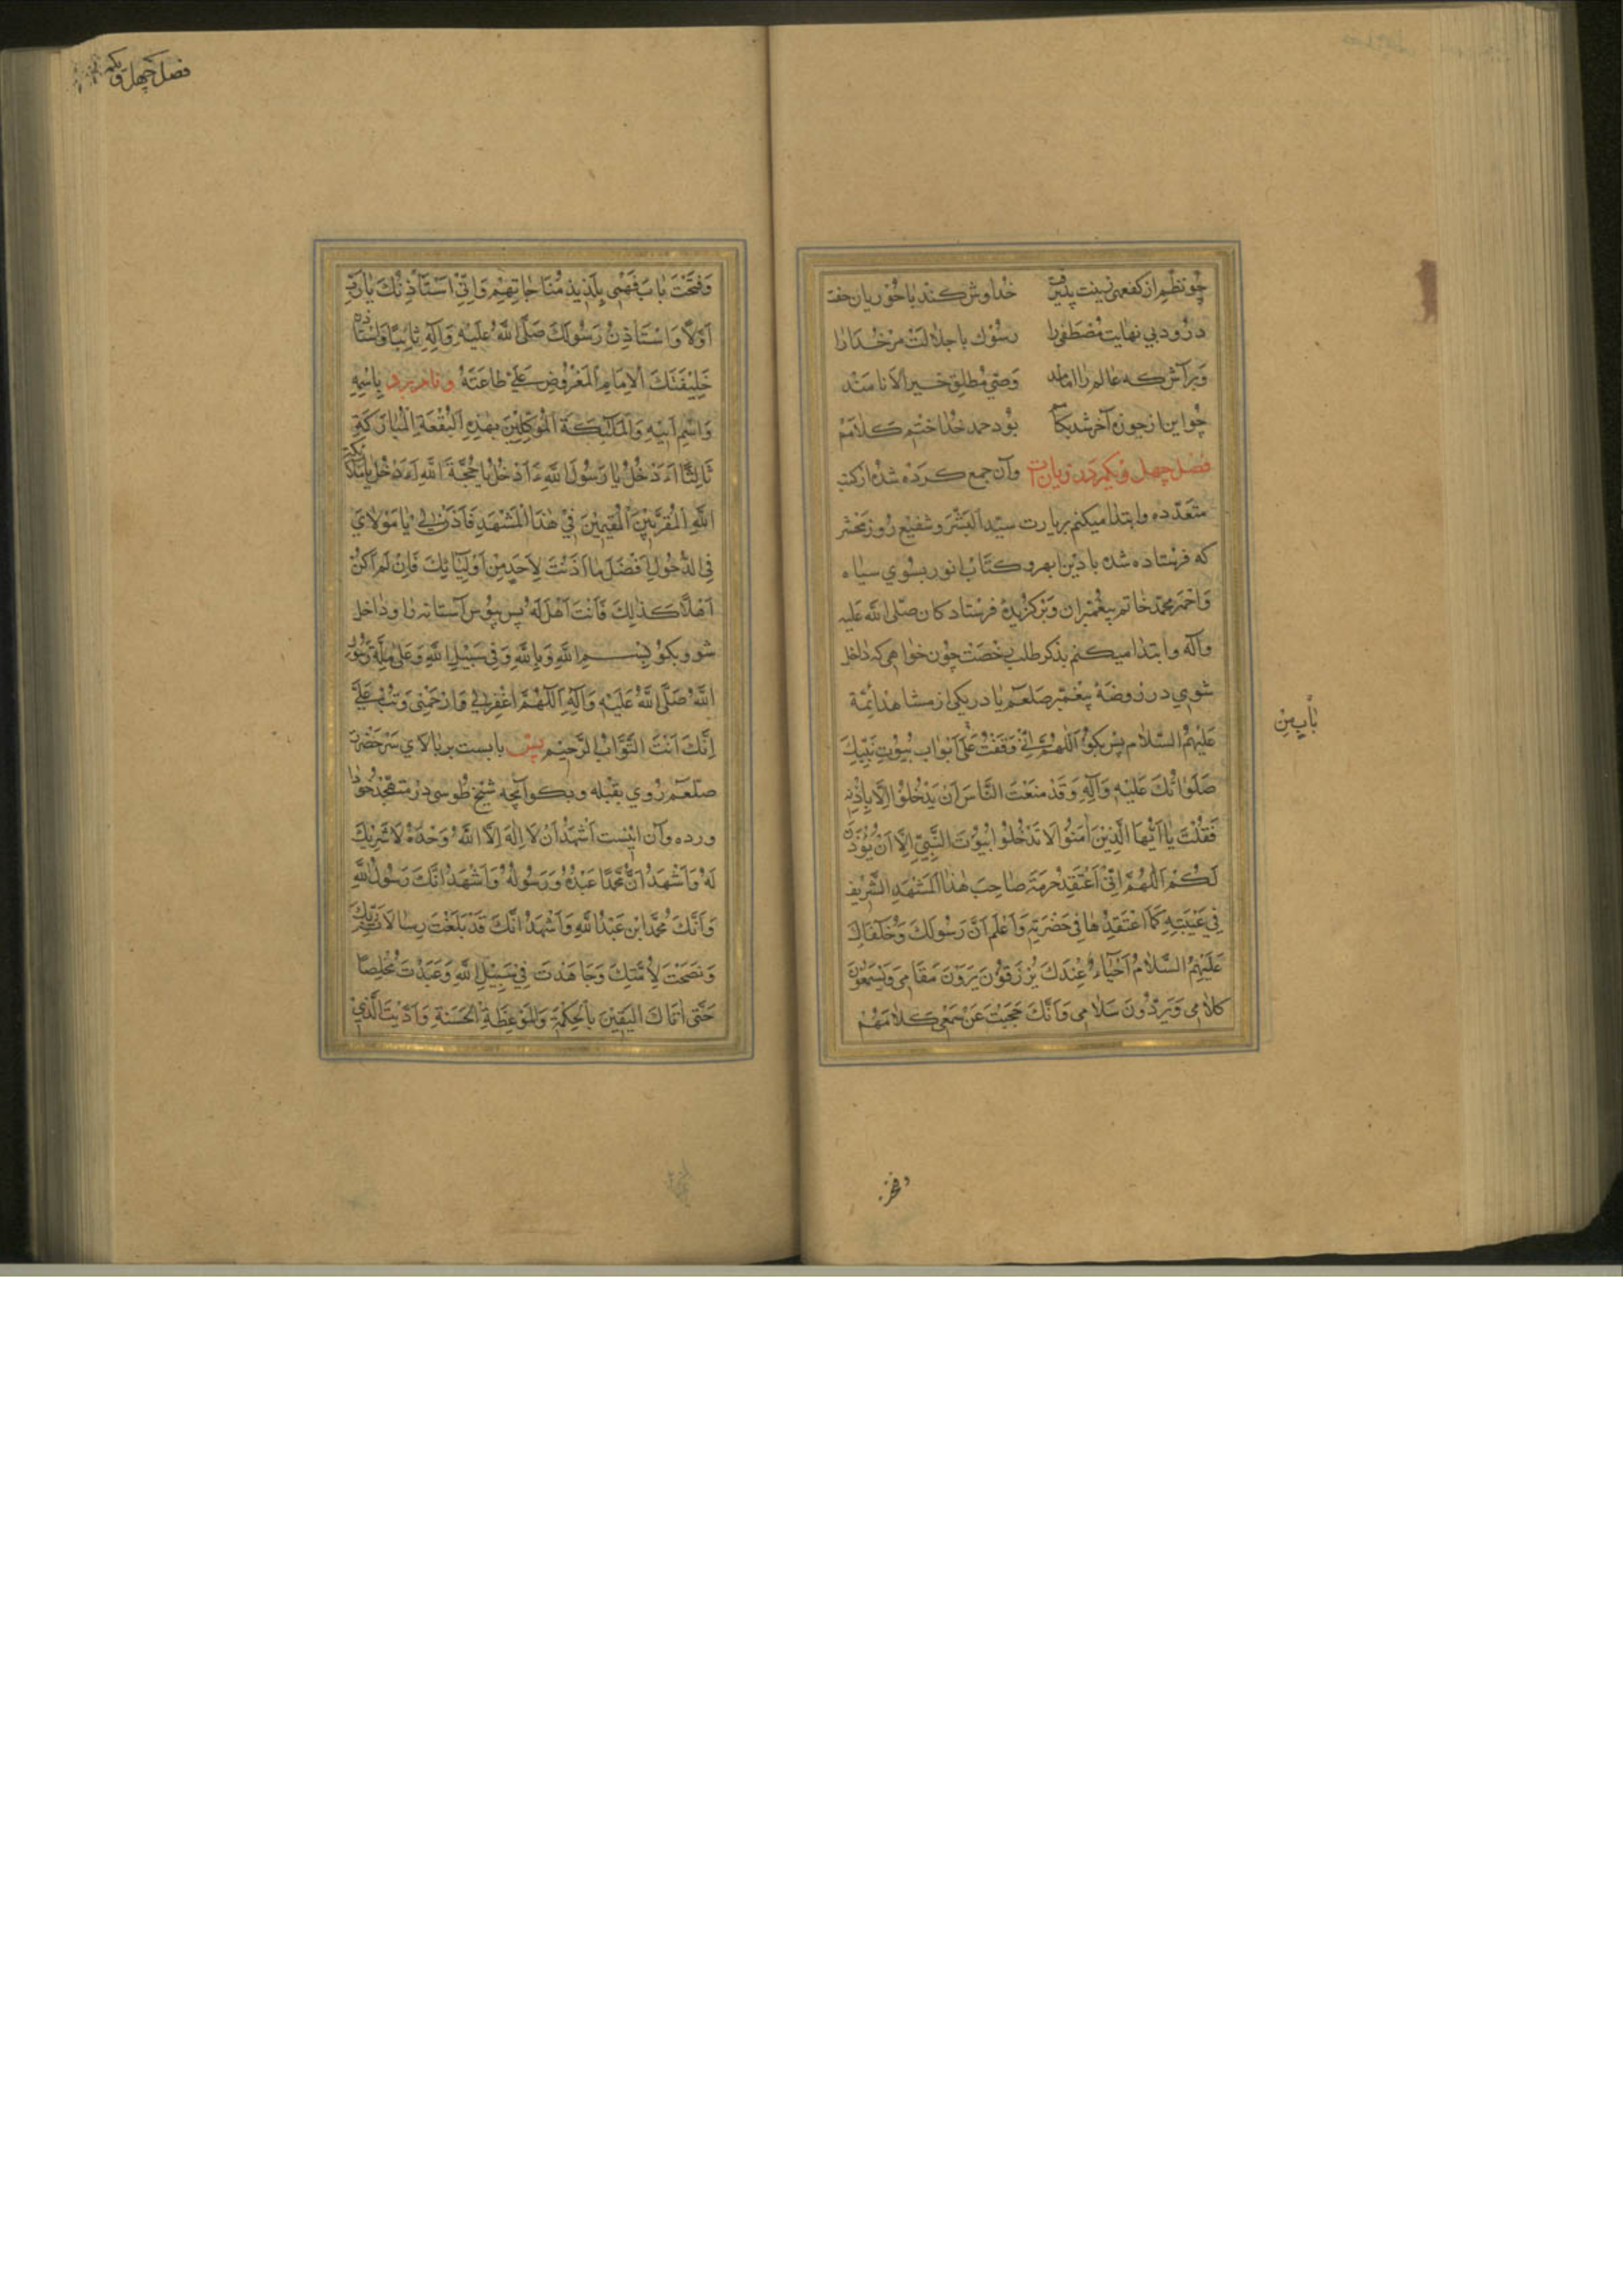 چو نظم از کفعمی زینت پذیرفت خداوش کند با حوریان جفت
درود بی نهایت مصطفی را رسول با جلالت مر خدا را
وبر آلش که عالم را امامند وصی مطلق خیر الانامند
چو این ارجوزه آخر شد بکامم بود حمد خدا ختم کلامم
فصل چهل ویکم در زیارت وآن جمع کرده شده از کتب
متعدده وابتدا میکنم بزیارت سیّد البشر و شفیع روز محشر
که فرستاده شده با دین ابهر و کتاب انور بسوی سیاه
واحمر محمّد خاتم پیغمبران وبرگزیدهٔ فرستادکان صلّی الله علیه
وآله وابتدا میکنم بذکر طلب رخصت چون خواهی که داخل
شوی در روضهٔ پیغمبر صلعم یا در یکی از مشاهد ائمّة
عَلَيْهِمُ السَّلامُ پس بکو اَللّٰهُمَّ اِنّي وَقَفْتُ عَلىٰ اَبْوابِ بُيُوتِ نَبِيِّكَ
صَلَوٰاتُكَ عَلَيْهِ وَآلِهِ وَقَدْ مَنَعْتَ النّاسَ اَنْ يَدْخُلُوا اِلّا بِاِذْنِهِ
فَقُلْتَ يٰا اَيُّهَا الَّذينَ اٰمَنُوا لَا تَدْخُلُوا بُيُوتَ النَّبِيِّ اِلّا اَنْ يُؤْذَنَ
لَكُمْ اَللّٰهُمَّ اِنّي اَعْتَقِدُ حُرْمَةَ صاحِبِ هٰذَا الْمَشْهَدِ الشَّريفِ
في غَيْبَتِهِ كَمٰا اَعْتَقِدُهٰا في حَضْرَتِهِ وَاَعْلَمُ اَنَّ رَسُولَكَ وَخُلَفاءَكَ
عَلَيْهِمُ السَّلامُ اَحْيٰاءٌ عِنْدَكَ يُرْزَقُونَ يَرَوْنَ مَقٰامي وَيَسْمَعُونَ
كَلامي وَيَرُدُّونَ سَلامي وَاَنَّكَ حَجَبْتَ عَنْ سَمْعي كَلامَهُمْ
بٰابٍ مِنْ
وفتحت
فصل چهل ویکم
وَفَتَحْتَ بٰابَ فَهْمي بِلَذيذِ مُنٰاجٰاتِهِمْ وَاِنّي اَسْتَأْذِنُكَ يٰا رَبِّ
اَوَّلًا وَاَسْتَأْذِنُ رَسُولَكَ صَلَّى اللهُ عَلَيْهِ وَآلِهِ ثانِيًا وَاَسْتَأْذِنُ
خَليفَتَكَ الْاِمٰامَ الْمَفْرُوضَ عَلَيَّ طٰاعَتُهُ ونام ببرد بِاِسْمِهِ
وَاسْمِ اَبيهِ وَالْمَلٰائِكَةَ الْمُوَكَّلينَ بِهٰذِهِ الْبُقْعَةِ الْمُبٰارَكَةِ
ثٰالِثًا ءَاَدْخُلُ يٰا رَسُولَ اللهِ ءَاَدْخُلُ يٰا حُجَّةَ اللهِ ءَاَدْخُلُ يٰا مَلٰائِكَةَ
اللهِ الْمُقَرَّبينَ الْمُقيمينَ في هٰذَا الْمَشْهَدِ فَأْذَنْ لي يٰا مَوْلايَ
فِي الدُّخُولِ اَفْضَلَ مٰا اَذِنْتَ لِاَحَدٍ مِنْ اَوْلِيٰائِكَ فَاِنْ لَمْ اَكُنْ
اَهْلًا كَذٰلِكَ فَاَنْتَ اَهْلٌ لَهُ پس ببوس آستانه را وداخل
شو وبکو بِسْمِ اللهِ وَبِاللهِ وَفي سَبيلِ اللهِ وَعَلىٰ مِلَّةِ رَسُولِ
اللهِ صَلَّى اللهُ عَلَيْهِ وَآلِهِ اَللّٰهُمَّ اغْفِرْ لي وَارْحَمْني وَتُبْ عَلَيَّ
اِنَّكَ اَنْتَ التَّوّابُ الرَّحيمُ پس بایست بر بالای سر حضرت
صلعم روی بقبله وبکو آنچه شیخ طوسی در متهجّد خود
ورده وآن اینست اَشْهَدُ اَنْ لَا اِلٰهَ اِلَّا اللهُ وَحْدَهُ لَا شَريكَ
لَهُ وَاَشْهَدُ اَنَّ مُحَمَّدًا عَبْدُهُ وَرَسُولُهُ وَاَشْهَدُ اَنَّكَ رَسُولُ اللهِ
وَاَنَّكَ مُحَمَّدُ ابْنُ عَبْدِ اللهِ وَاَشْهَدُ اَنَّكَ قَدْ بَلَّغْتَ رِسٰالاتِ رَبِّكَ
وَنَصَحْتَ لِاُمَّتِكَ وَجٰاهَدْتَ في سَبيلِ اللهِ وَعَبَدْتَ مُخْلِصًا
حَتّىٰ اَتٰاكَ الْيَقينُ بِالْحِكْمَةِ وَالْمَوْعِظَةِ الْحَسَنَةِ وَاَدَّيْتَ الَّذي